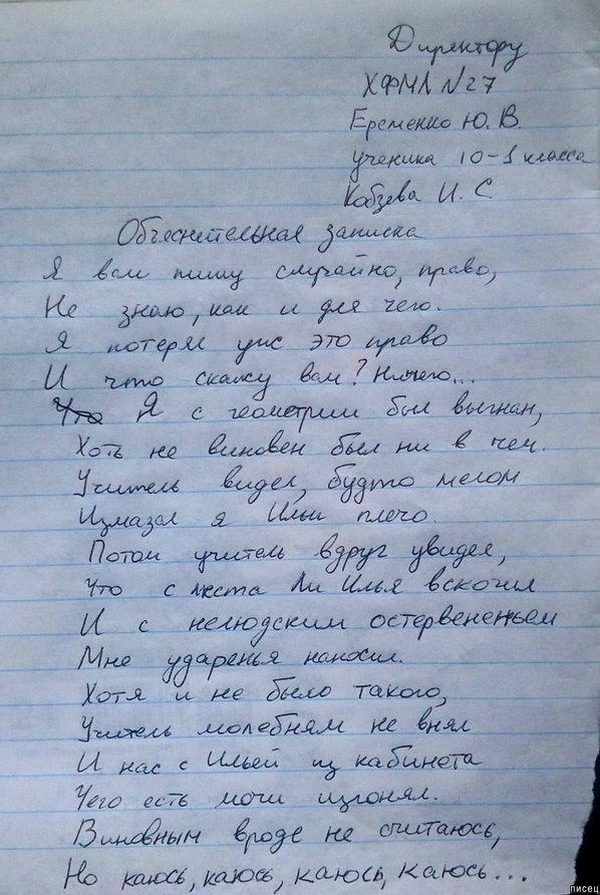 Директору
ХФМЛ №27
Еременко Ю. В.
ученика 10-1 класса
Кобзева И. С
Объяснительная записка
Я вам пишу случайно, право,
Не знаю, как и для чего.
Я потерял уж это право
И что скажу вам? Ничего...
Что Я с геометрии был выгнан,
Хоть не виновен был ни в чем.
Учитель видел, будто мелом
Измазал я Ильи плечо.
Потом учитель вдруг увидел,
Что с места Ли Илья вскочил
И с нелюдским остервененьем
Мне ударенья наносил.
Хотя и не было такого,
Учитель молебням не внял
И нас с Ильей из кабинета
Чего есть мочи изгонял.
Виновным вроде не считаюсь,
Но каюсь, каюсь, каюсь, каюсь...
писец